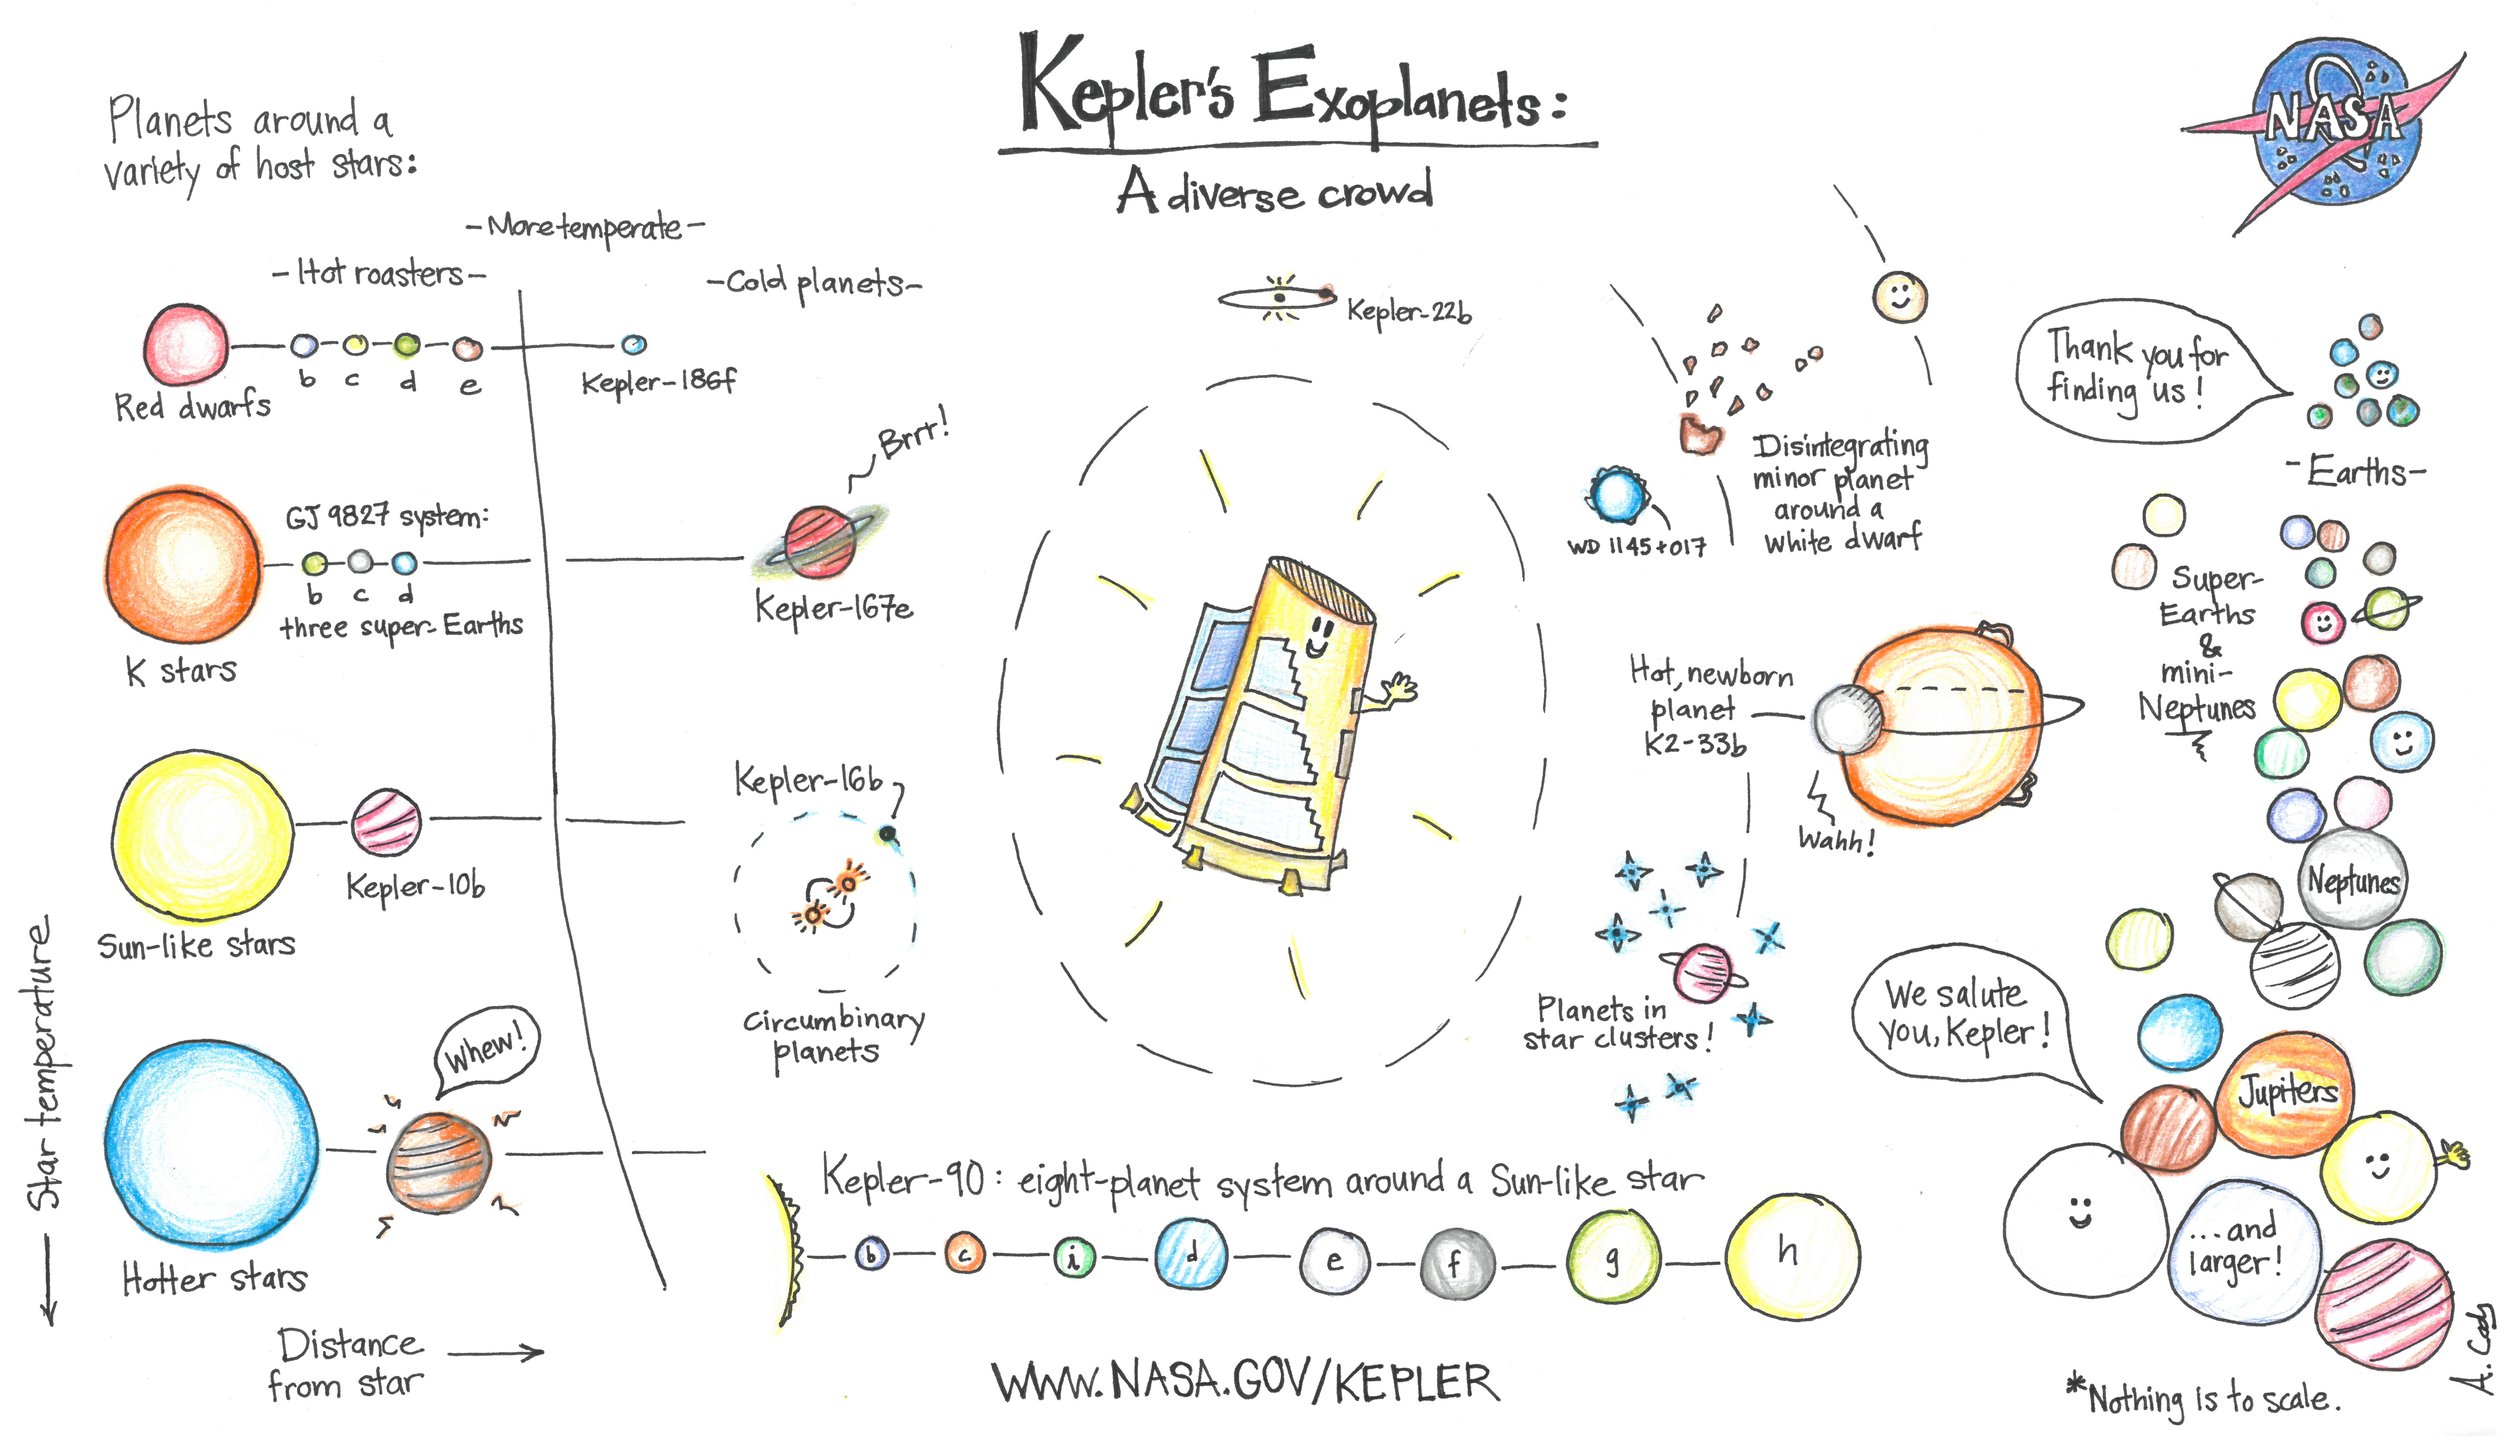 Kepler's Exoplanets:
A diverse crowd
NASA
Planets around a
variety of host stars:
-More temperate-
-Hot roasters-
-Cold planets-
b c d e
Kepler-186f
Red dwarfs
Brrr!
GJ 9827 system:
b c d
three super-Earths
Kepler-167e
K stars
Kepler-10b
Sun-like stars
Kepler-16b
Circumbinary
planets
Whew!
Hotter stars
Star temperature
Distance
from star
Kepler-22b
Disintegrating
minor planet
around a
white dwarf
WD 1145+017
Hot, newborn
planet
K2-33b
Wahh!
Planets in
star clusters!
Kepler-90: eight-planet system around a Sun-like star
b c i d e f g h
WWW.NASA.GOV/KEPLER
Thank you for
finding us!
-Earths-
Super-
Earths
&
mini-
Neptunes
Neptunes
We salute
you, Kepler!
Jupiters
...and
larger!
*Nothing is to scale.